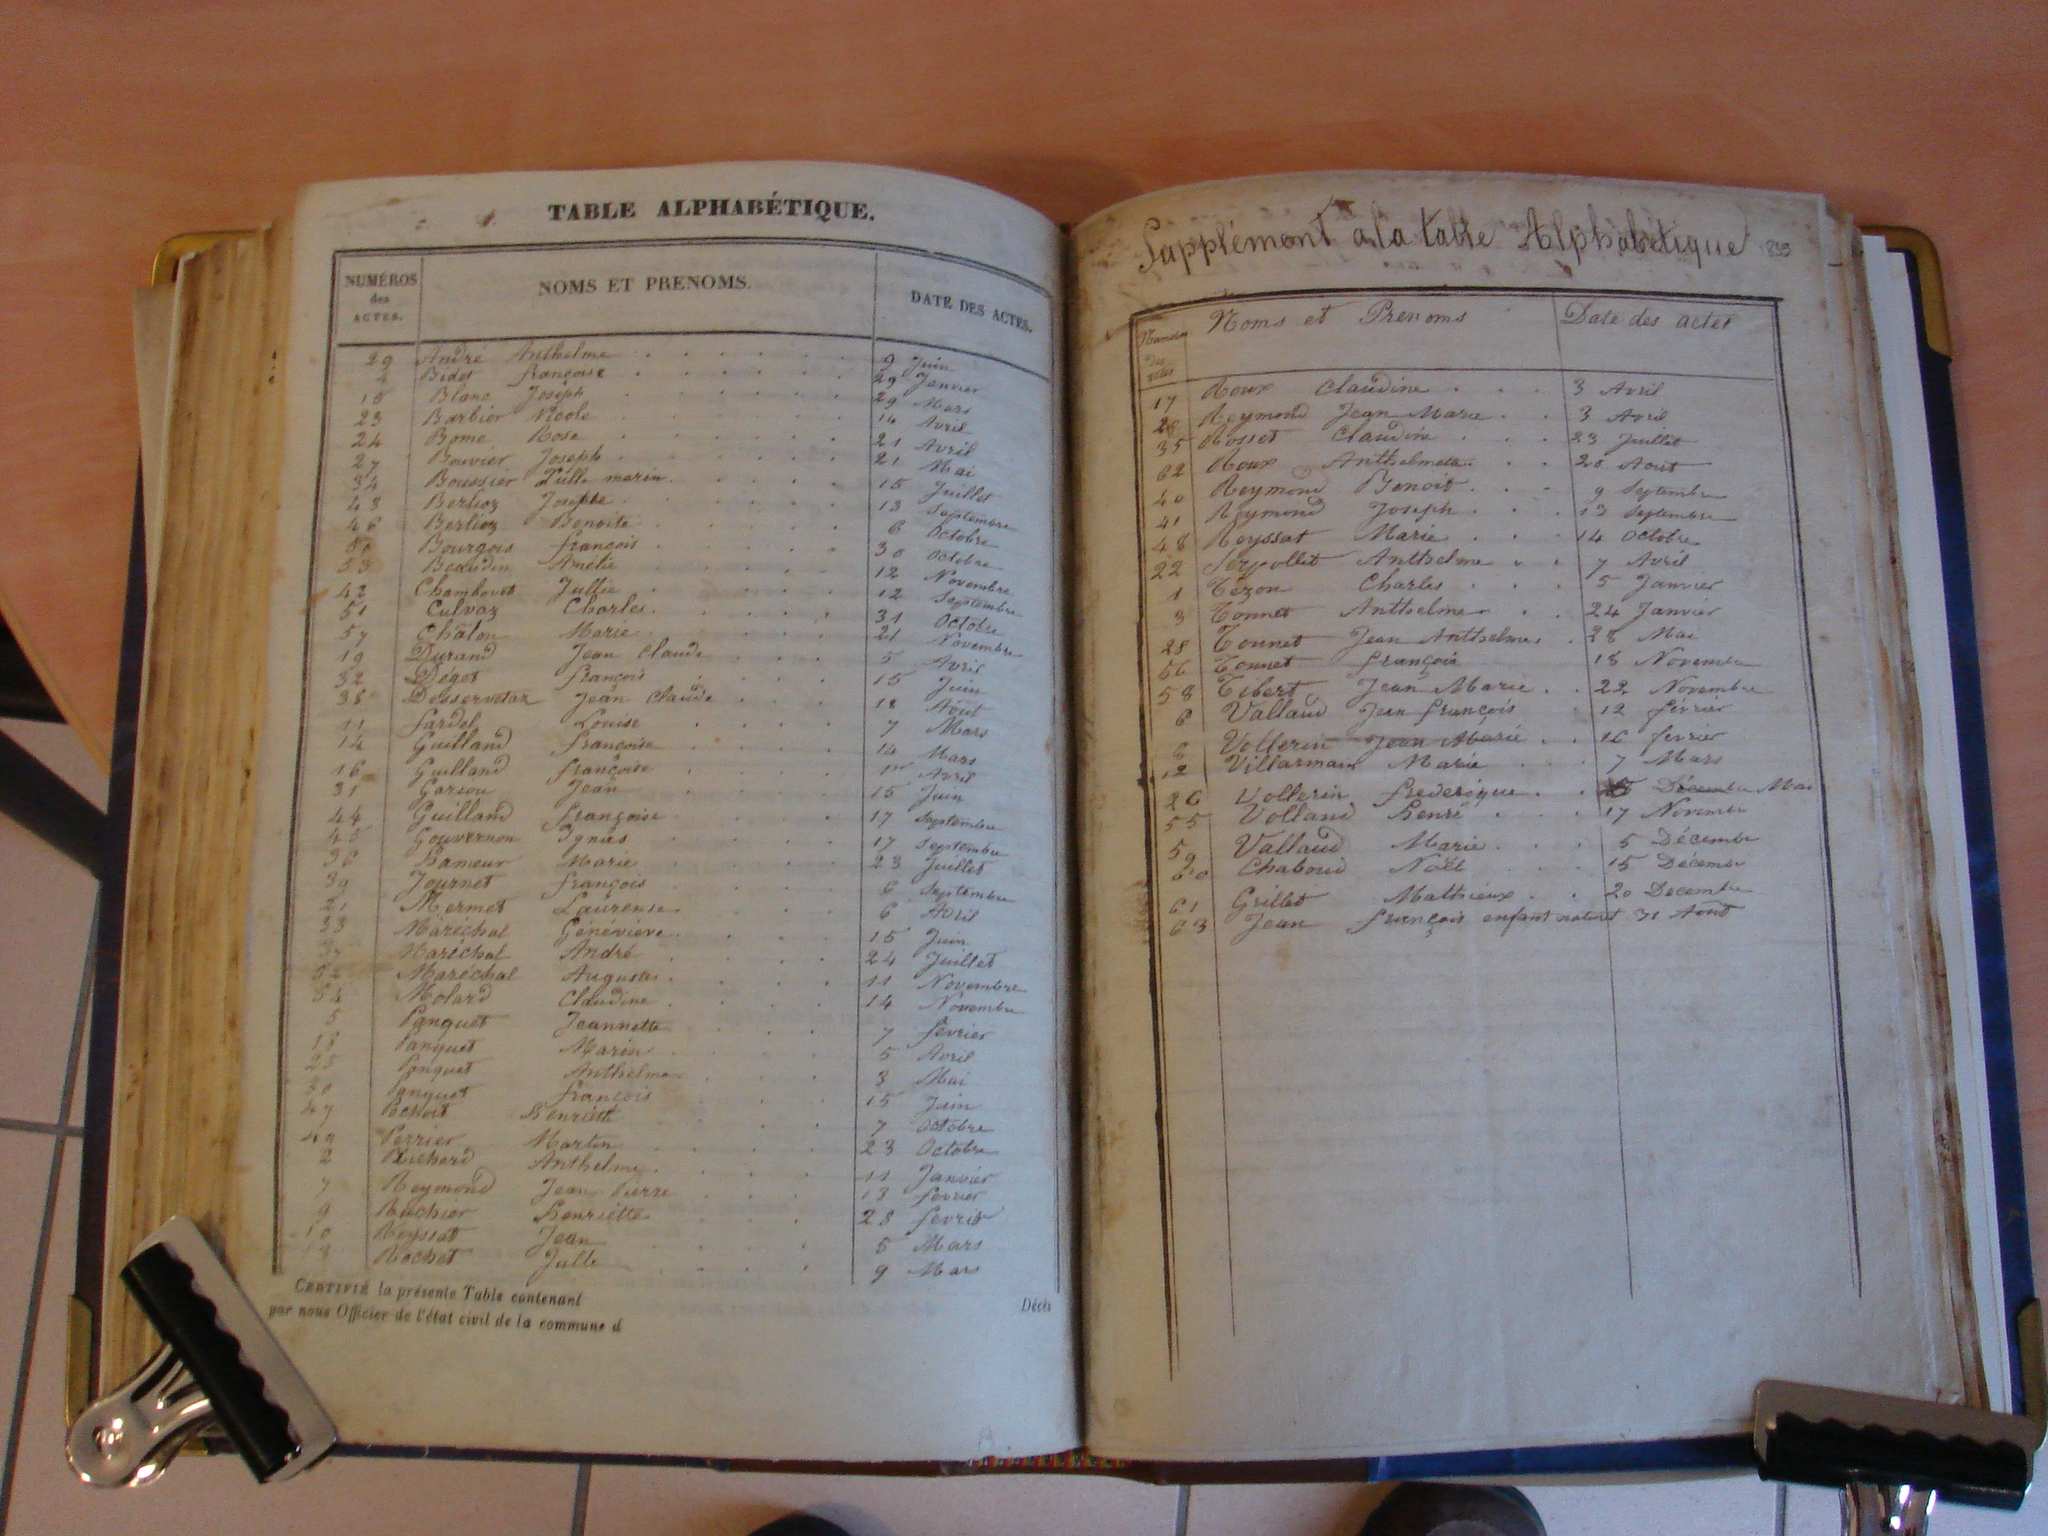 TABLE ALPHABÉTIQUE.
NUMÉROS des ACTES.
NOMS ET PRENOMS.
DATE DES ACTES.
29 André Anthelme 9 Juin
4 Bidot françoise 29 Janvier
15 Blanc Joseph 29 Mars
23 Barbier Nicole 14 Avril
24 Bome Rose 21 Avril
27 Bouvier Joseph 21 Mai
34 Boussier marin 15 Juillet
43 Berlioz Josephe 13 Septembre
46 Berlioz Benoite 6 Octobre
50 Bourgois françois 30 Octobre
53 Beaudin Amélie 12 Novembre
42 Chambovet Jullie 12 Septembre
51 Culvaz Charles 31 Octobre
57 Châlon Marie 21 Novembre
19 Durand Jean Claude 5 Avril
32 Dégot françois 15 Juin
38 Desservetaz Jean Claude 18 Août
11 fardel Louise 7 Mars
14 Guilland françoise 14 Mars
16 Guilland françoise 1er Avril
31 Garson Jean 15 Juin
44 Guilland françoise 17 Septembre
45 Gouvernon Ignias 17 Septembre
36 hameur Marie 23 Juillet
39 Journet françois 6 Septembre
21 Mermet Laurense 6 Avril
33 Maréchal Généviève 15 Juin
Maréchal André 24 Juillet
52 Maréchal Auguste 11 Novembre
54 Molard Claudine 14 Novembre
5 Panquet Jeannette 7 fevrier
Panquet Marin 5 Avril
25 Panquet Anthelme 3 Mai
30 Panquet françois 15 Juin
47 Benoit henriett 7 Octobre
49 Perrier Martin 23 Octobre
2 Richerd Anthelme 11 Janvier
7 Reymond Jean Pierre 13 fevrier
9 Ruchier henriette 28 fevrier
10 Reyssat Jean 5 Mars
Rochet Julle 9 Mars
CERTIFIÉ la présente Table contenant Décès
par nous Officier de l'état civil de la commune d
Supplément a la table Alphabétique
Numéro des actes
Noms et Prenoms
Date des actes
17 Roux Claudine 3 Avril
20 Reymond Jean Marie 3 Avril
35 Rosset Claudine 23 Juillet
62 Roux Anthelmete 28 Aout
40 Reymond Benoit 9 Septembre
41 Reymond Joseph 13 Septembre
48 Reyssat Marie 14 Octobre
22 Serpollet Anthelme 7 Avril
1 Tézon Charles 5 Janvier
3 Tonnet Anthelme 24 Janvier
28 Tonnet Jean Anthelme 28 Mai
56 Tonnet françois 18 Novembre
58 Tibert Jean Marie 22 Novembre
6 Vallaud Jean françois 12 février
8 Vollerin Jean Marie 16 fevrier
12 Villarmain Marie 7 Mars
26 Vollerin frederique Décembre Mai
55 Volland henré 17 Novembre
59 Vallaud Marie 5 Décembre
60 Chaboud Noël 15 Décembre
61 Grillet Mathieux 20 Decembre
63 Jean françois enfant naturel 31 Aout